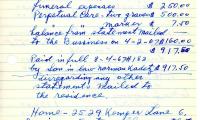 funeral expenses $ 250.00
Perpetual Care - two graves $ 500.00
" " marker $ 7.50
balance from statement mailed
to the Business on 4-2-67 $ 160.00
$ 917.50
Paid in full 8-4-67 #182
by son in law norman $ 917.50
disregarding any other
statements mailed to
the residence.
Home - 2529 Kemper Lane 6,